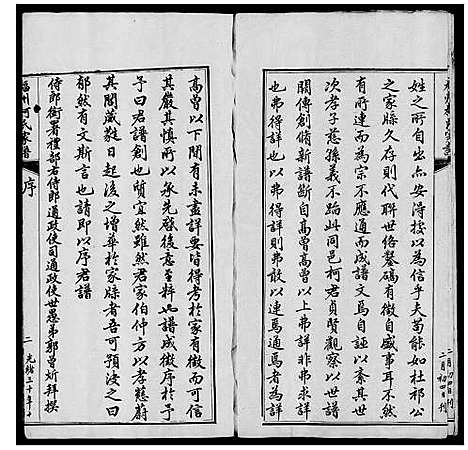 姓之所自出亦安得挍以爲信乎夫苟能如杜祁公
之家縣久存則代聯世絡鑿碻有徵自威事耳不然
有所連而爲宗不應通而成譜文爲自誣以紊其世
次孝子慈孫義不蹈此同邑柯君貞賢觀察以世譜
闕傳創脩新譜斷自高曾高曾以上弗詳非弗求詳
也弗得詳也以弗得詳則弗敢以連爲通爲者爲詳
高曾以下間有未盡詳要皆得考於家有徵而可信
其嚴其慎所以承先啓後意至粹也譜成徵序於予
予曰君譜創也質宜然雖然君家伯仲方以孝慈蔚
其閥威斅日起後之增華於家牒者吾可預決之曰
郁然有文斯言也請即以序君譜
侍郎銜署禮部右侍郎通政使司通政使世愚弟郭曾炘拜撰
福州柯氏家譜
序
二
光緒三十年
二月初四日刊